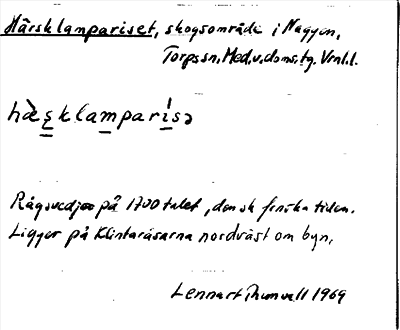 Härsklampariset, skogsområde i Naggen,
Torpssn, Med.v.doms.tg. Vrnl.l.
hæ̀sklamparísə
Rågsvedjor på 1700 talet, den sk finska tiden.
Ligger på Klintaråsarna nordväst om byn.
Lennart Thunvall 1969